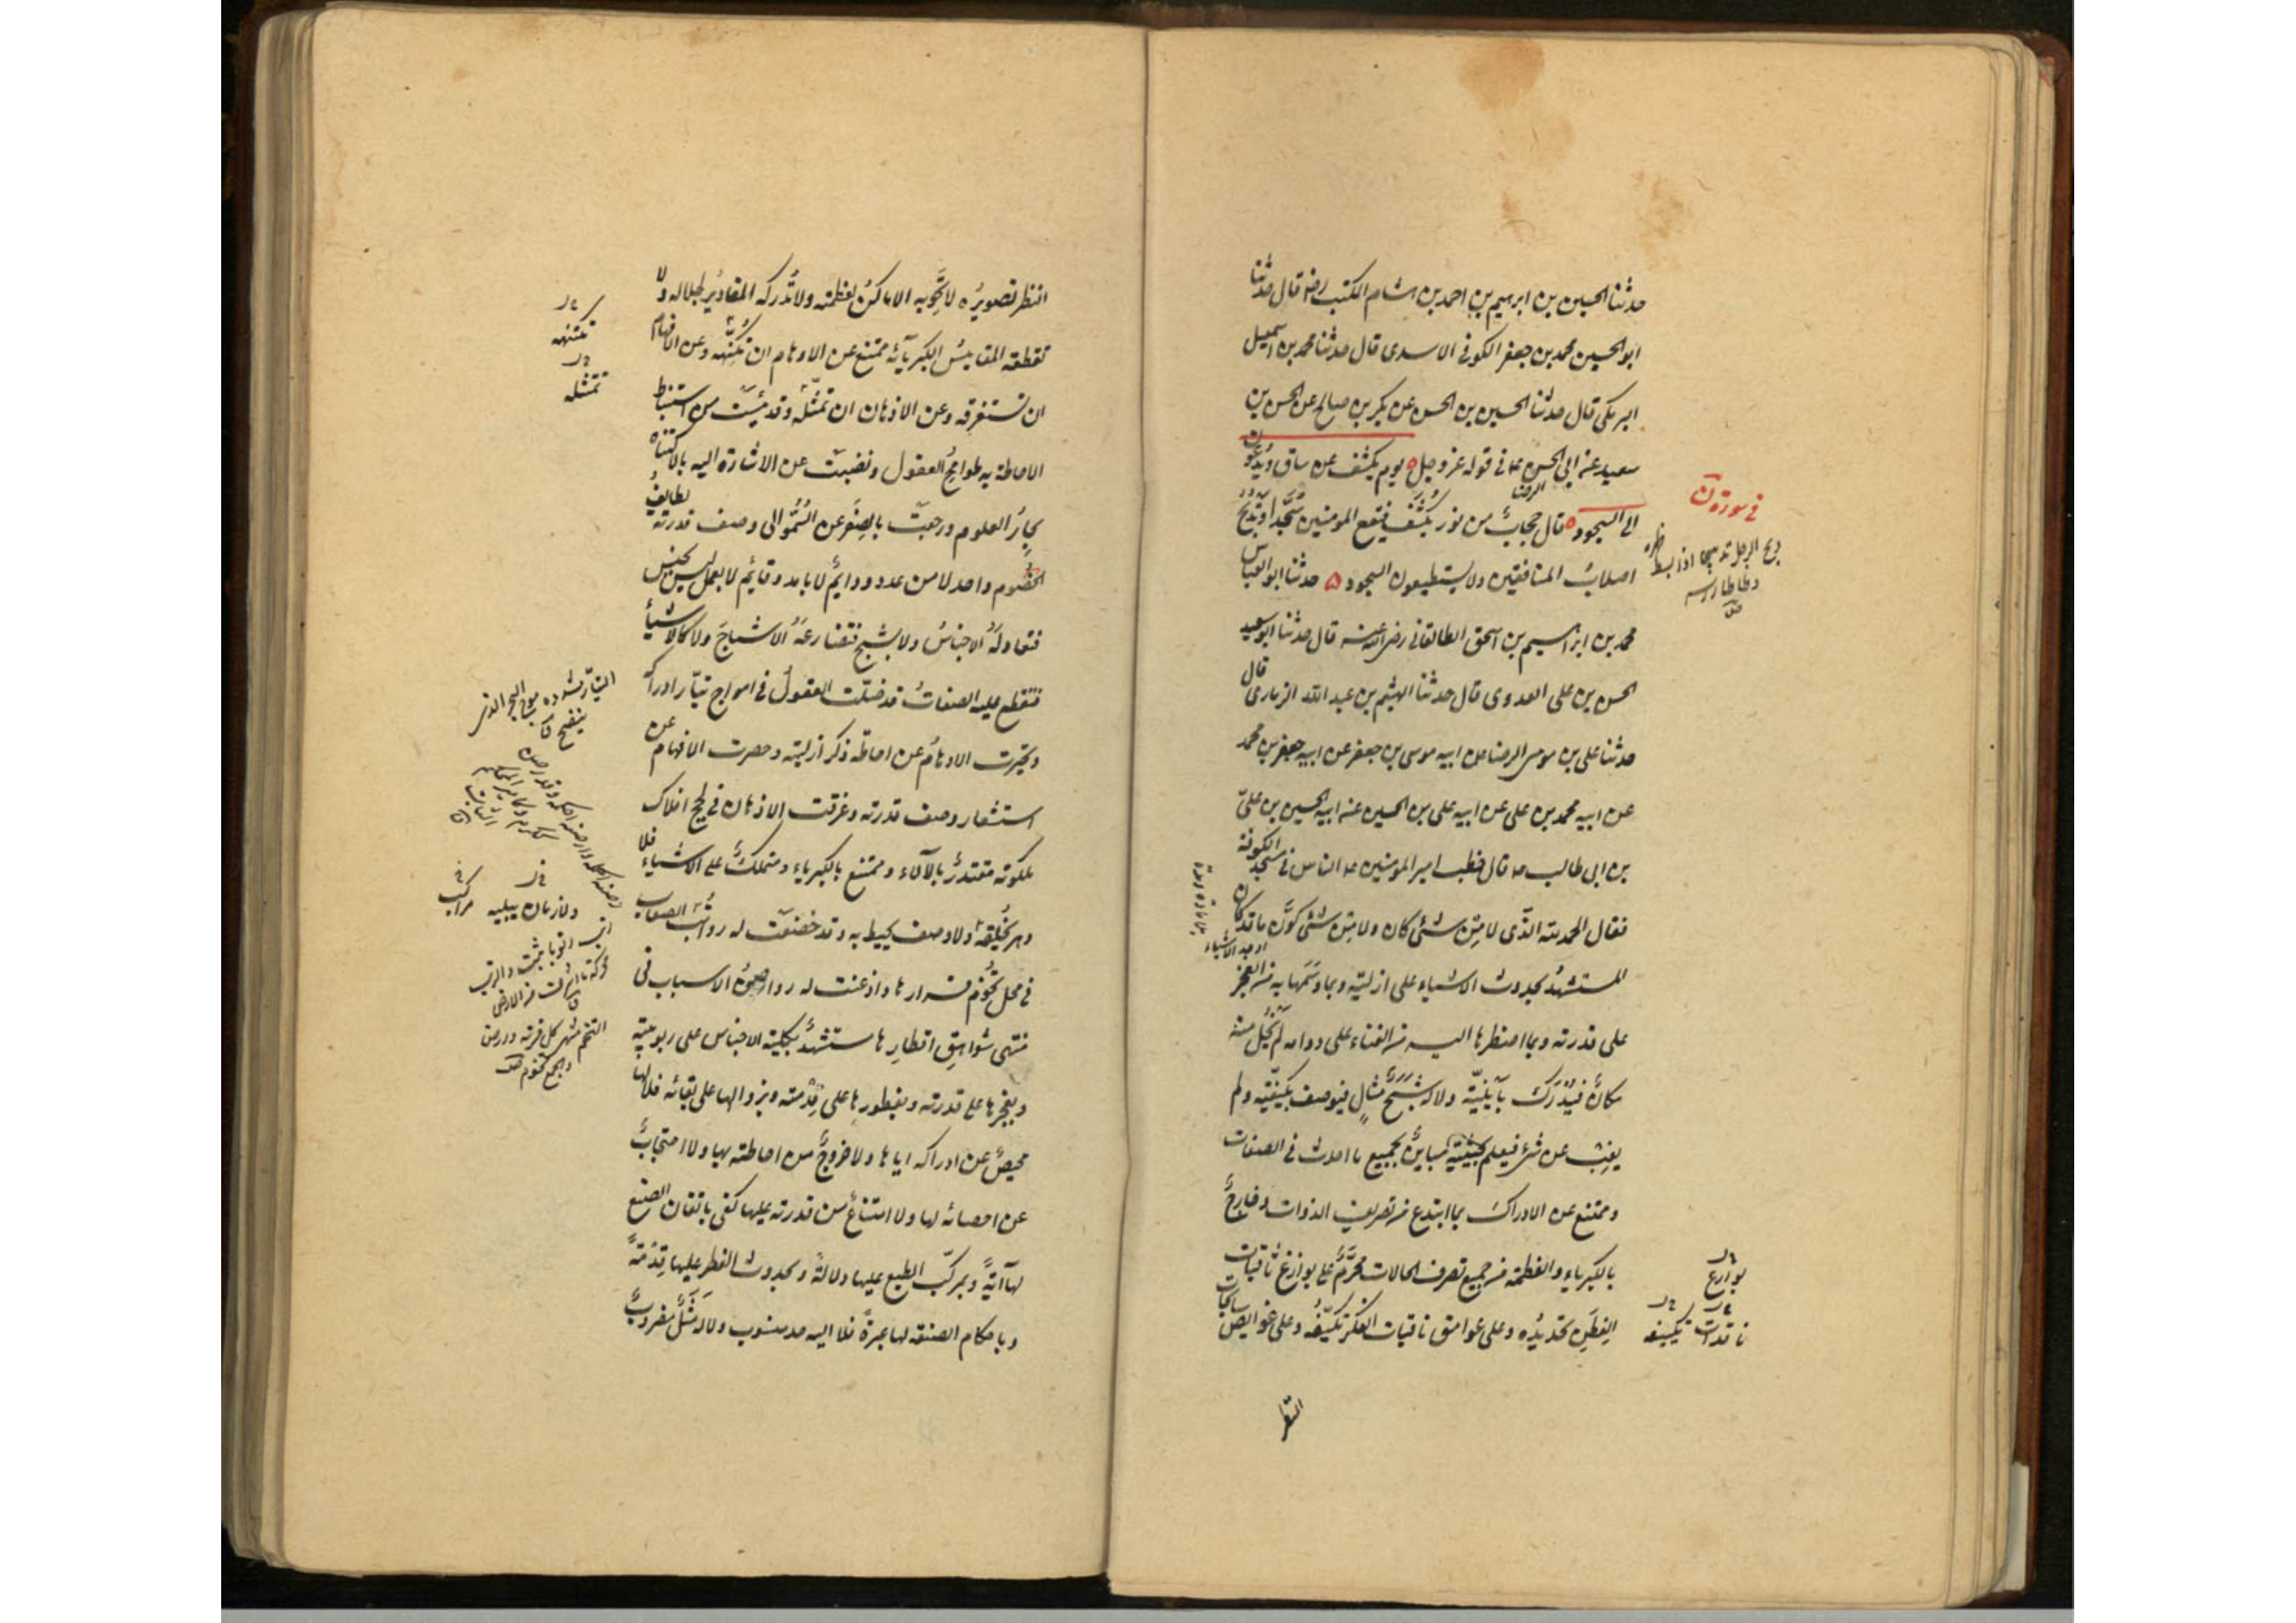 حدثنا الحسين بن ابرهيم بن احمد بن هشام المكتب رضه قال حدثنا
ابو الحسين محمد بن جعفر الكوفي الاسدي قال حدثنا محمد بن اسمعيل
البرمكي قال حدثنا الحسين بن الحسن عن بكر بن صالح عن الحسن بن
سعيد عن ابي الحسن ع في قوله عز وجل يوم يكشف عن ساق ويُدعون
الرضا
الى السجود قال حجابٌ من نور يُكشَف فيقع المومنين سُجَّدا وتُدبَحُ
اصلابُ المنافقين ولا يستطيعون السجود ۵ حدثنا ابو العباس
محمد بن ابراهيم بن اسحق الطالقاني رضي الله عنه قال حدثنا ابو سعيد
الحسن بن علي العدوي قال حدثنا الهيثم بن عبد الله الرماري قال
حدثنا علي بن موسى الرضا عن ابيه موسى بن جعفر عن ابيه جعفر بن محمد
عن ابيه محمد بن علي عن ابيه علي بن الحسين عن ابيه الحسين بن عليّ
بن ابي طالب ع قال خطب امير المومنين ع الناس في مسجد الكوفة
فقال الحمد لله الذّي لا مِن شئ كان ولا مِن شئ كوَّن ما قد كان
المستشهدُ بحدوث الاشياء على ازليّته وبما وسَمَها به من العجز
على قدرته وبما اضطرها اليه من الفناء على دوامه لم يَخلُ منه
مكانٌ فيُدرَكَ بأينيّة ولا له شَبَحُ مثالٍ فيوصف بكيفيّة ولم
يغِب عن شئ فيعلم بحيثيّة مباينٌ لجميع ما احدث في الصفات
وممتنع عن الادراك بما ابتدع من تصريف الذوات وخارجٌ
بالكبرياء والعظمة من جميع تصرف الحالات محرَّمٌ على بوارع ثاقبات
الفِطَنِ تحديدُه وعلى عوامق ناقبات الفكر تكييفُه وعلى غوايص سابحات
النظر
في سورة ن
دبح الرجل تدبيحا اذا بسط ظهره
وطاطا راسه
بوارع
ناقدات تكييفه
النظر تصويرُه لا تَحويه الاماكنُ لعظمته ولا تُدركه المقاديرُ لجلاله ولا
تقطعه المقاييسُ لكبريآئه ممتنع عن الاوهام ان تكتنهه وعن الافهام
ان تستغرقه وعن الاذهان ان تمثّله وقد يئست من استنباط
الاحاطة به طوامحُ العقول ونضبت عن الاشارة اليه بالاكتناه
بحارُ العلوم ورجعت بالصِغَر عن السُمُوّ الى وصف قدرته لطايفُ
الخصُوم واحد لا من عدد ودايمٌ لا بامد وقايمٌ لا بعمل ليس بجنس
فتعادلَهُ الاجناسُ ولا بشبح فتضارعَهُ الاشباحَ ولا كالاشياء
فتقطع عليه الصفاتُ قد ضلّت العقولُ في امواج تيّار ادراكه
وتحيّرت الاوهامُ عن احاطة ذكر ازليته وحصرت الافهام عن
استشعار وصف قدرته وغرقت الاذهان في لجج افلاك
ملكوته مقتدرٌ بالآلاء وممتنع بالكبرياء ومتملكٌ على الاشياء فلا
دهر يُخلِقُهُ ولا وصف يحيط به وقد خضعت له رواتبُ الصعاب
في محل تخُوم قرارها واذعنت له رواصنُ الاسباب في
منتهى شواهقِ اقطارِها مستشهدٌ بكلية الاجناس على ربوبيته
وبعجزها على قدرته وبفطورها على قِدْمته وبزوالها على بقائه فلا لها
محيصٌ عن ادراكه اياها ولا خروجٌ من احاطته بها ولا احتجابٌ
عن احصائه لها ولا امتناعٌ من قدرته عليها كفى باتقان الصنع
لها آيةً وبمركّب الطبع عليها دلالةً وبحدوث الفطر عليها قِدْمةً
وباحكام الصنعة لها عبرةً فلا اليه حد منسوب ولا له مَثَلٌ مضروبٌ
تكتنهه
تمثله